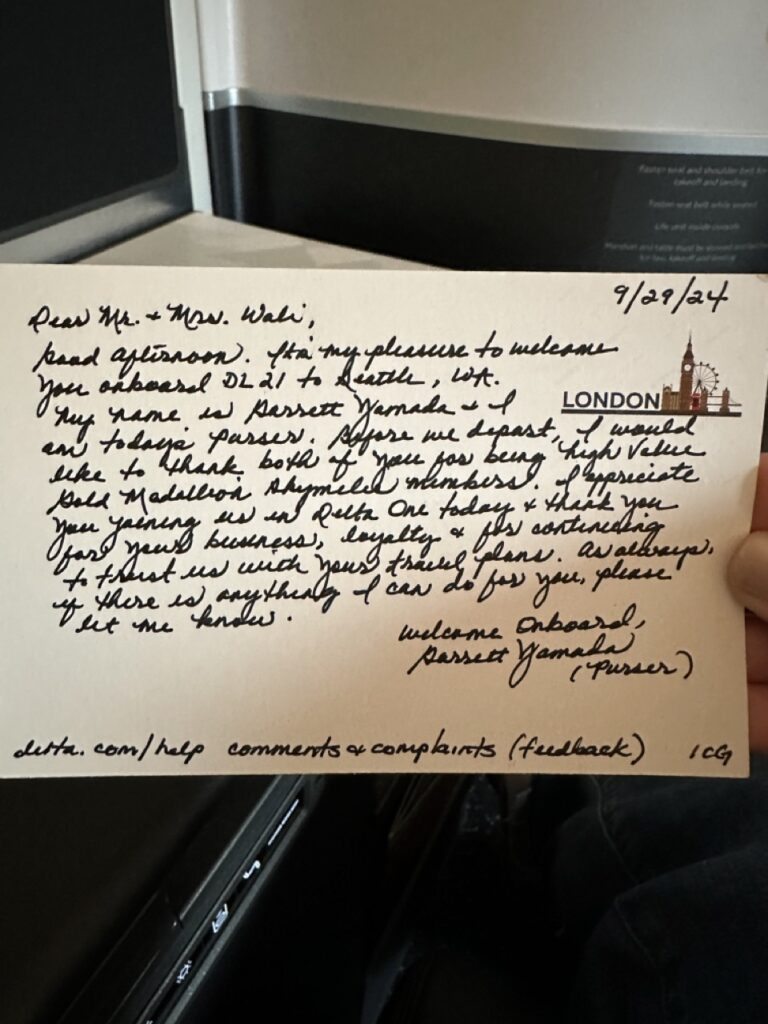 Fasten seat and shoulder belt for
takeoff and landing
Fasten seat belt while seated
Life vest inside console
9/29/24
Dear Mr. + Mrs. Wali,
Good afternoon. It's my pleasure to welcome
you onboard DL 21 to Seattle, WA.
LONDON
My name is Garrett Yamada + I
am today's purser. Before we depart, I would
like to thank both of you for being high value
Gold Medallion Skymiles members. I appriciate
you joining us in Delta One today + thank you
for your business, loyalty + for continuing
to trust us with your travel plans. As always,
if there is anything I can do for you, please
let me know.
Welcome Onboard,
Garrett Yamada
(Purser)
delta.com/help comments & complaints (feedback) 1CG